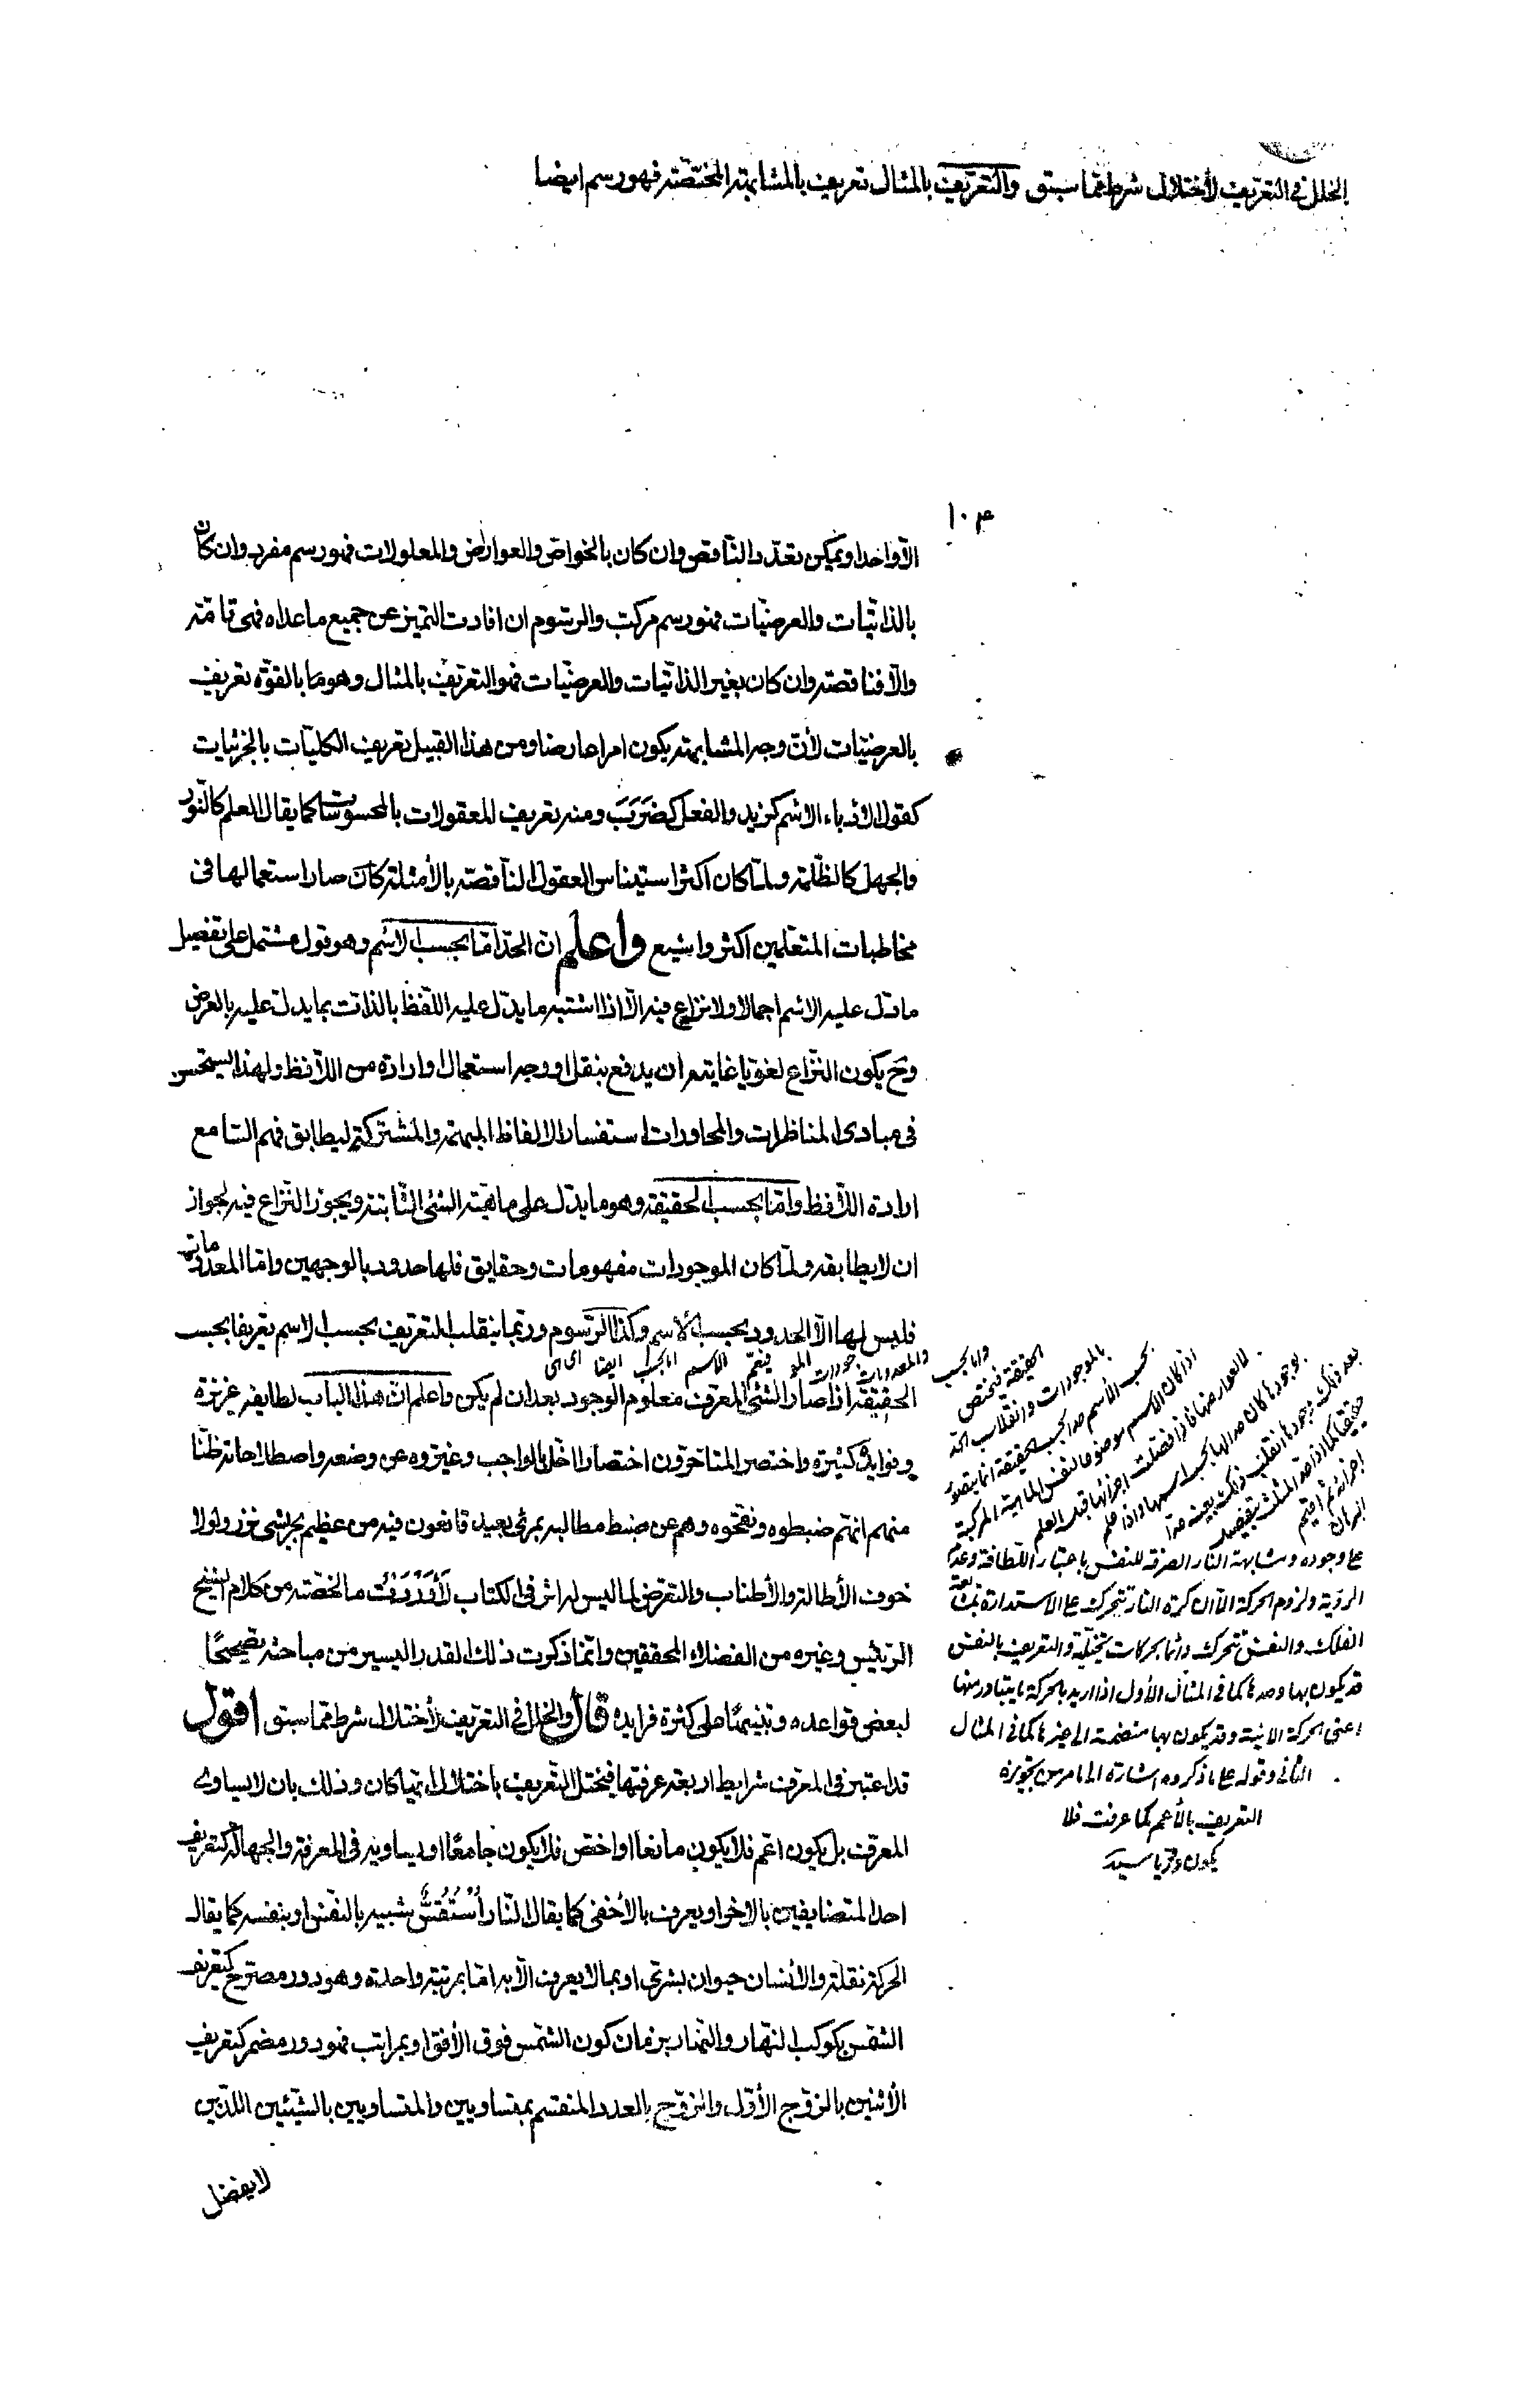 الخلل في التعريف لأختلال شرط مما سبق والتعريف بالمثال تعريف بالمشابهة المختصة فهو رسم ايضا
١٠٤
الا واحدا ويمكن تعدد الناقص وان كان بالخواص والعوارض والمعلولات فهو رسم مفرد وان كان
بالذاتيات والعرضيات فهو رسم مركب والرسوم ان افادت التميز عن جميع ما عداه فهى تامة
والا فناقصة وان كان بغير الذاتيات والعرضيات فهو التعريف بالمثال وهو ما بالقوة تعريف
بالعرضيات لأن وجه المشابهة يكون امرا عارضا ومن هذا القبيل تعريف الكليات بالجزئيات
كقول الأدباء الاسم كزيد والفعل كضَرَبَ ومنه تعريف المعقولات بالمحسوسات كما يقال العلم كالنور
والجهل كالظلمة ولما كان اكثر استيناس العقول الناقصة بالأمثلة كان صار استعمالها فى
مخاطبات المتعلمين اكثر واشيع واعلم ان الحد اما بحسب الاسم وهو قول مشتمل على تفصيل
ما دل عليه الاسم اجمالا ولا نزاع فيه الا اذا اشتبه ما يدل عليه اللفظ بالذات بما يدل عليه بالعرض
وح يكون النزاع لغويا غايته ان يدفع بنقل او وجه استعمال او ارادة من اللافظ ولهذا يستحسن
فى مبادى المناظرات والمحاورات استفسار الالفاظ المبهمة والمشتركة ليطابق فهم السامع
ارادة اللافظ واما بحسب الحقيقة وهو ما يدل على ماهية الشئ الثابتة ويجوز النزاع فيه لجواز
ان لا يطابقه ولما كان الموجودات مفهومات وحقايق فلها حدود بالوجهين واما المعدومات
فليس لها الا الحدود بحسب الاسم وكذا الرسوم وربما ينقلب التعريف بحسب الاسم تعريفا بحسب
الحقيقة اذا صار الشئ المعرف معلوم الوجود بعد ان لم يكن واعلم ان هذا الباب لطايفه عزيزة
وفوايده كثيرة واختصر المتاخرون اختصارا اخل بالواجب وغيروه عن وضعه واصطلاحاته ظنا
منهم انهم ضبطوه ونقحوه وهم عن ضبط مطالبه بمرئى بعيد قانعون فيه من عظيم بحر بشى نزر ولولا
خوف الأطالة والأطناب والتعرض لما ليس له اثر فى الكتاب لَأَوْرَدْتُ ما لخصته من كلام الشيخ
الرئيس وغيره من الفضلاء المحققين وانما ذكرت ذلك القدر اليسير من مباحثه تصحيحًا
لبعض قواعده وتنبيهًا على كثرة فرايده قال والخلل فى التعريف لأختلال شرط مما سبق اقول
قد اعتبر فى المعرف شرايط اربعة عرفتها فيختل التعريف باختلال ايها كان وذلك بان لا يساوى
المعرف بل يكون اعم فلا يكون مانعا او اخص فلا يكون جامعًا او يساويه فى المعرفة والجهالة كتعريف
احد المتضايفين بالاخر او يعرف بالأخفى كما يقال النار أُسْتُقُسٌّ شبيه بالنفس او بنفسه كما يقال
الحركة نقلة والأنسان حيوان بشرى او بما لا يعرف الا به اما بمرتبة واحدة وهو دور مصرح كتعريف
الشمس بكوكب النهار والنهار بزمان كون الشمس فوق الأفق او بمراتب فهو دور مضمر كتعريف
الأثنين بالزوج الأول والزوج بالعدد المنقسم بمتساويين والمتساويين بالشيئين اللذين
لا يفضل
واما بحسب
الحقيقة فتختص
بالموجودات وانقلاب الحد
بحسب الأسم حدا بحسب الحقيقة انما يتصور
اذا كان الاسم موضوعا لنفس الماهية المركبة
لا لعوارضها فاذا فصلت اجزائها قبل العلم
بوجودها كان حدا لها بحسب اسمها واذا علم
بعد ذلك وجودها انقلب ذلك بعينه حدا
اجزائه ثم اقيم
البرهان
على وجوده ومشابهة النار الصرفة للنفس باعتبار اللطافة وعدم
الرؤية ولزوم الحركة الا ان كرة النار تتحرك على الاستدارة بمتابعة
الفلك والنفس تتحرك دائما بحركات تخيلية والتعريف بالنفس
قد يكون بها وحدها كما فى المثال الأول اذا اريد بالحركة ما يتبادر منها
اعنى الحركة الاينية وقد يكون بها منضمة الى غيرها كما فى المثال
الثانى وقوله على ما ذكروه اشارة الى ما مر من تجويزه
التعريف بالأعم كما عرفت فلا
يكون سيد